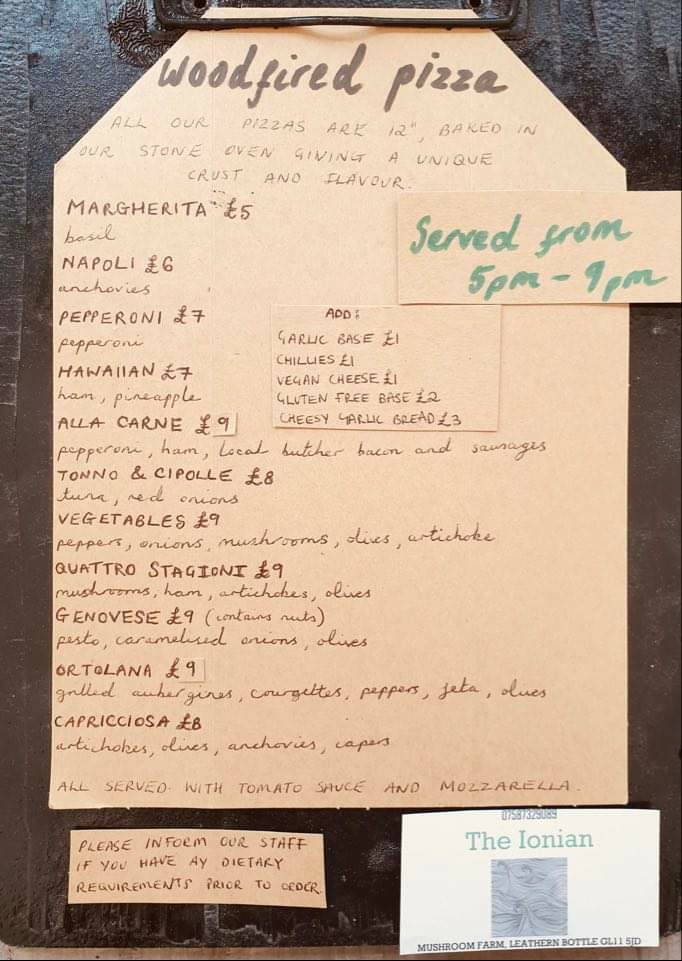 woodfired pizza
ALL OUR PIZZAS ARE 12", BAKED IN
OUR STONE OVEN GIVING A UNIQUE
CRUST AND FLAVOUR.
MARGHERITA £5
basil
Served from
5pm - 9pm
NAPOLI £6
anchovies
PEPPERONI £7
pepperoni
HAWAIIAN £7
ham, pineapple
ADD:
GARLIC BASE £1
CHILLIES £1
VEGAN CHEESE £1
GLUTEN FREE BASE £2
CHEESY GARLIC BREAD £3
ALLA CARNE £9
pepperoni, ham, local butcher bacon and sausages
TONNO & CIPOLLE £8
tuna, red onions
VEGETABLES £9
peppers, onions, mushrooms, olives, artichoke
QUATTRO STAGIONI £9
mushrooms, ham, artichokes, olives
GENOVESE £9 (contains nuts)
pesto, caramelised onions, olives
ORTOLANA £9
grilled aubergines, courgettes, peppers, feta, olives
CAPRICCIOSA £8
artichokes, olives, anchovies, capers
ALL SERVED WITH TOMATO SAUCE AND MOZZARELLA.
PLEASE INFORM OUR STAFF
IF YOU HAVE AY DIETARY
REQUIREMENTS PRIOR TO ORDER.
07587329089
The Ionian
MUSHROOM FARM, LEATHERN BOTTLE GL11 5JD